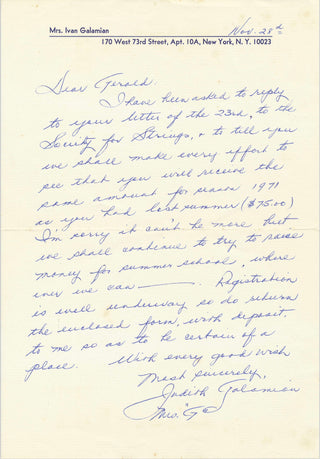 Mrs. Ivan Galamian
Nov. 28th
170 West 73rd Street, Apt. 10A, New York, N. Y. 10023
Dear Gerald.
I have been asked to reply
to your letter of the 23rd, to the
Society for Strings, & to tell you
we shall make every effort to
see that you will receive the
same amount for season 1971
as you had last summer ($75.00)
I'm sorry it can't be more but
we shall continue to try to raise
money for summer school, where
ever we can —. Registration
is well underway so do return
the enclosed form, with deposit
to me so as to be certain of a
place. With every good wish
Most sincerely,
Judith Galamian
"Mrs. G"